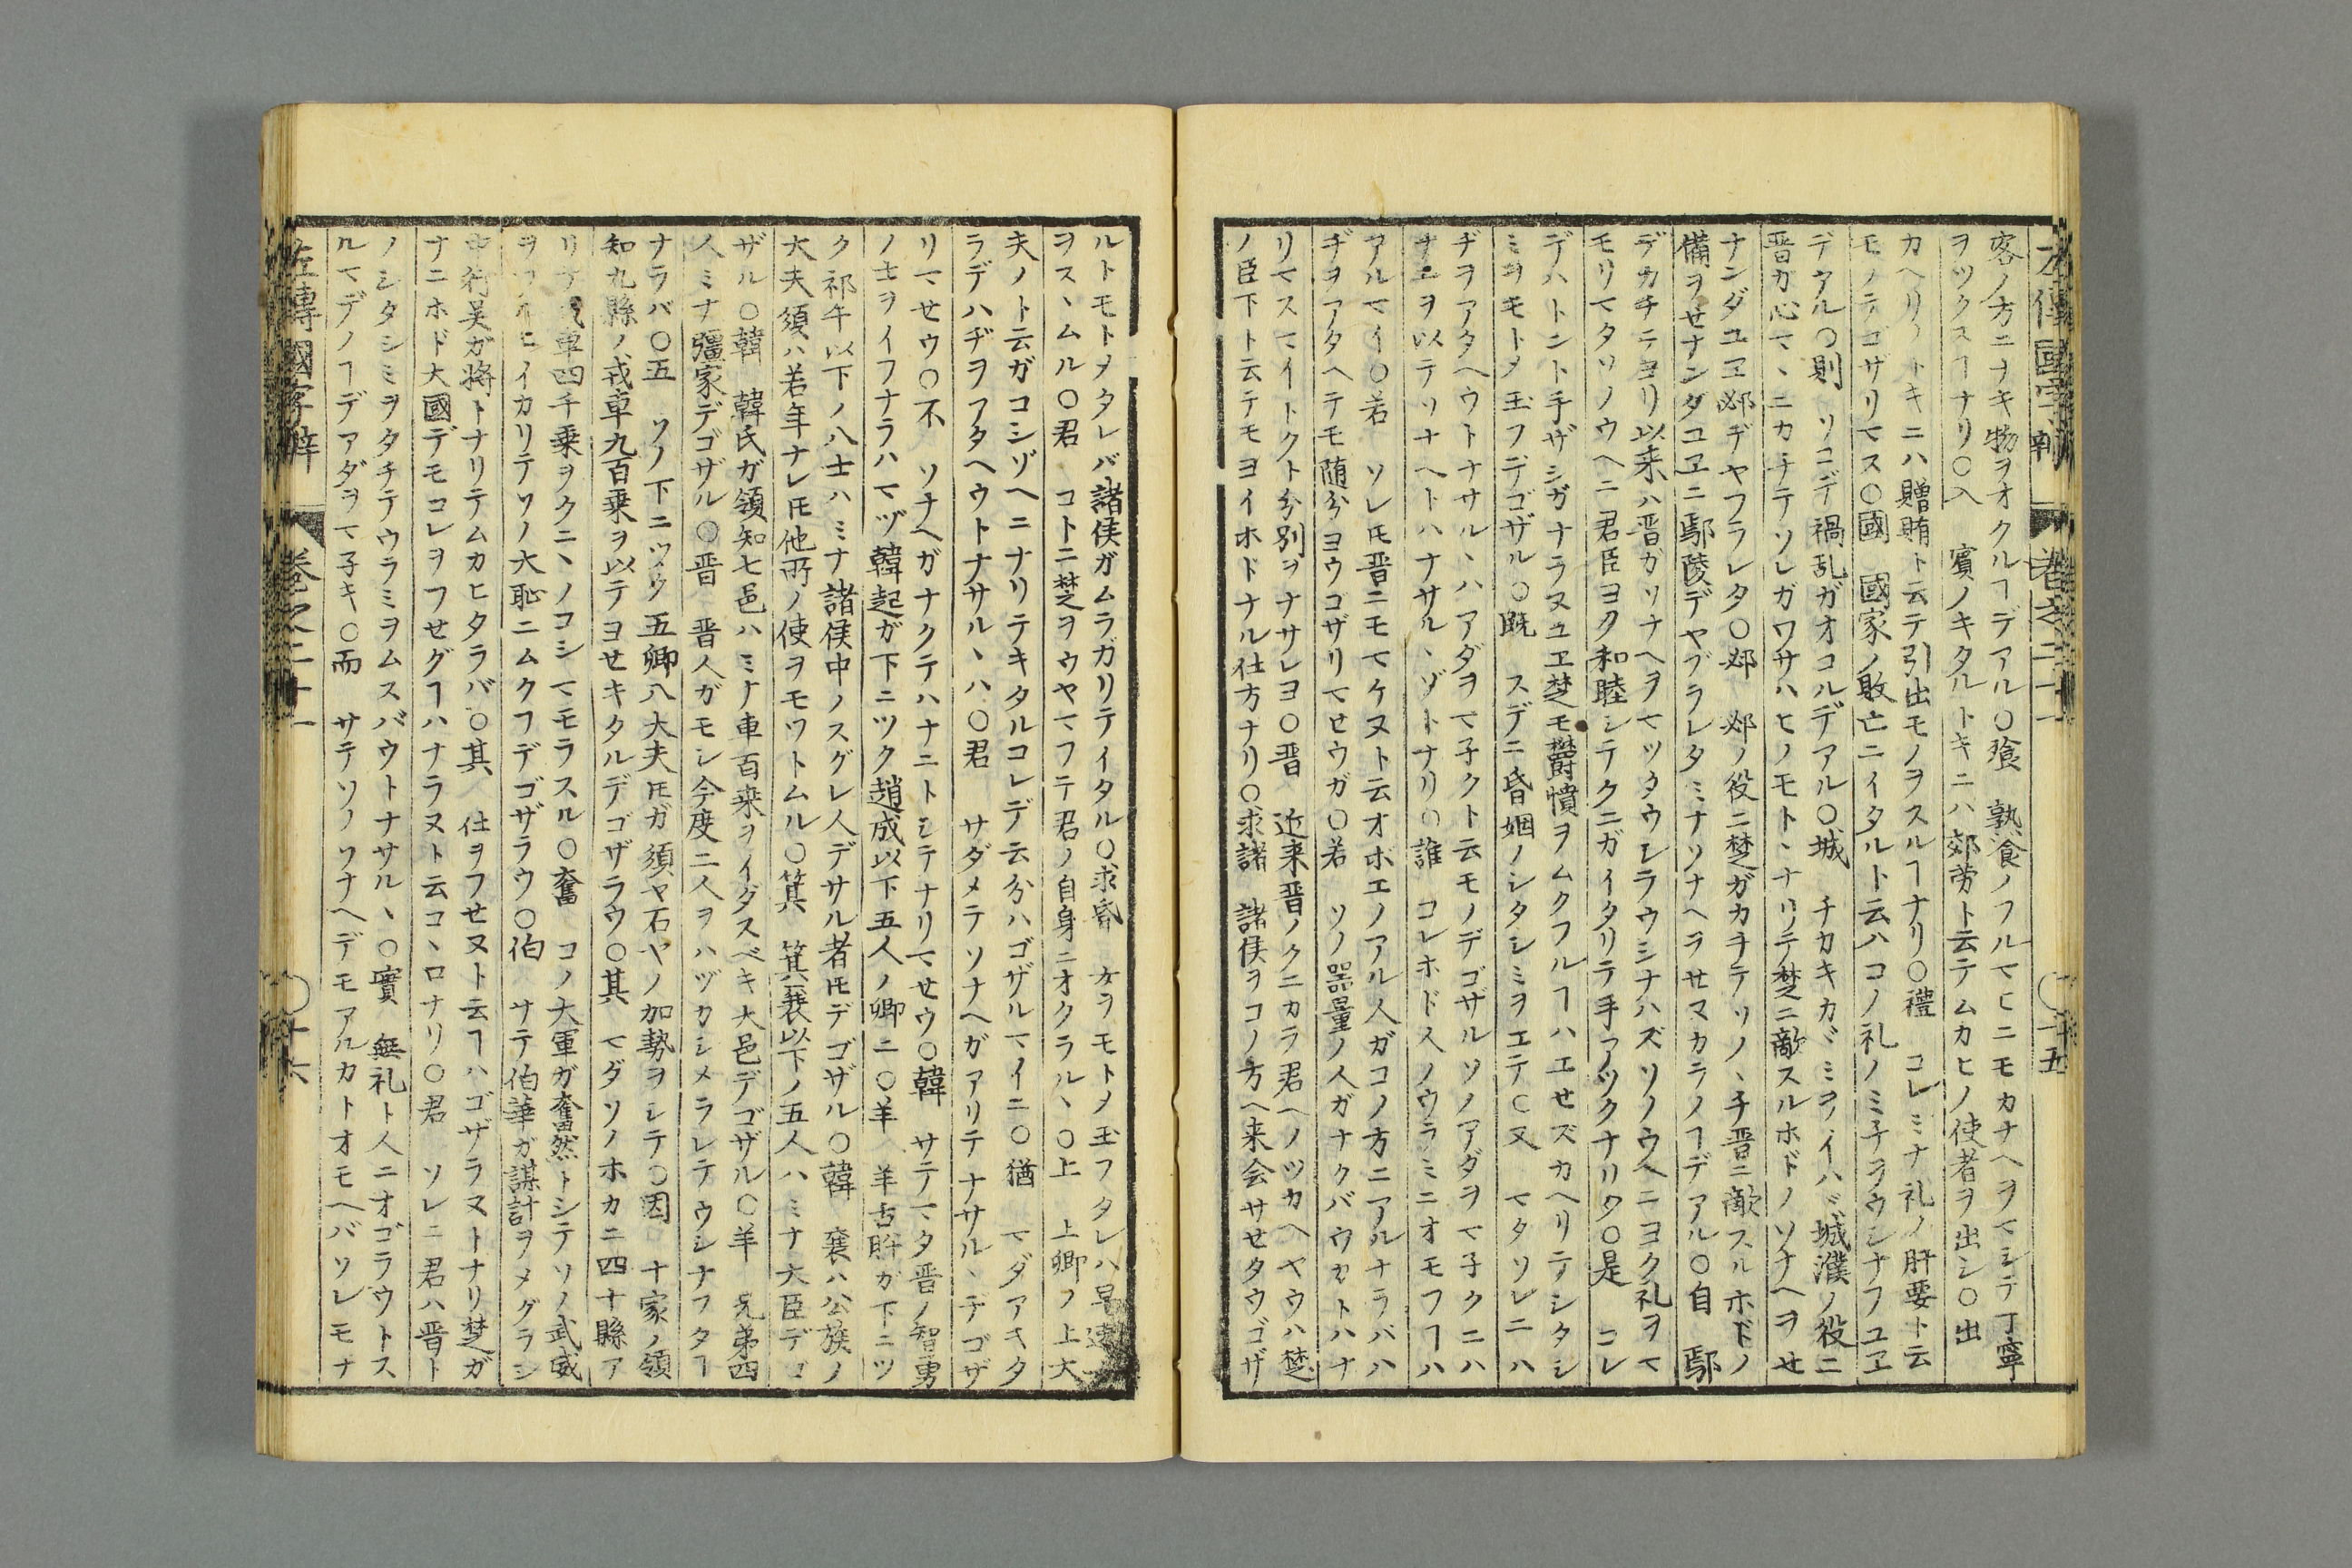 左傳國字觧 卷之二十一 〇十五
客ノ方ニナキ物ヲオクルヿデアル〇飧 孰飡ノフルマヒニモカナヘヲマシテ丁寧
ヲツクスヿナリ〇入 賓ノキタルトキニハ郊劳ト云テムカヒノ使者ヲ出シ〇出
カヘリノトキニハ贈賄ト云テ引出モノヲスルヿナリ〇禮 コレミナ礼ノ肝要ト云
モノテゴザリマス〇國 國家ノ敗亡ニイタルト云ハコノ礼ノミチヲウシナフユヱ
デアル〇則 ソコデ禍乱ガオコルデアル〇城 チカキカヾミヲイハヾ城濮ノ役ニ
晋カ心マヽニカチテソレガワサハヒノモトヽナリテ楚ニ敵スルホドノソナヘヲせ
ナンダユヱ邲デヤフラレタ〇邲 邲ノ役ニ楚ガカチテソノヽチ晋ニ敵スルホドノ
備ヲせナンダユヱニ鄢陵デヤブラレタミナソナヘヲせマカラノヿデアル〇自 鄢
デカチテヨリ以来ハ晋ガソナヘヲマツタウシラウシナハズソノウヘニヨク礼ヲマ
モリマタソノウヘニ君臣ヨク和睦シテクニガイタリテ手アツクナリタ〇是 コレ
デハトント手ザシガナラヌユヱ楚モ欝憤ヲムクフルヿハエせズカヘリテシタシ
ミヲモトメ玉フデゴザル〇既 スデニ昏姻ノシタシミヲエテ〇又 マタソレニハ
ヂヲアタヘウトナサルヽハアダヲマ子クト云モノデゴザルソノアダヲマ子クニハ
ナニヲ以テソナヘトハナサルヽゾトナリ〇誰 コレホドスノウラミニオモフヿハ
アルマイ〇若 ソレ𪜈晋ニモマケヌト云オボエノアル人ガコノ方ニアルナラバハ
ヂヲアタヘテモ随分ヨウゴザリマせウガ〇若 ソノ器量ノ人ガナクバウカトハナ
リマスマイトクト分別ヲナサレヨ〇晋 近来晋ノクニカラ君ヘノツカヘヤウハ楚
ノ臣下ト云テモヨイホドナル仕方ナリ〇求諸 諸侯ヲコノ方ヘ来会サせタウゴザ
ルトモトメタレバ諸侯ガムラガリテイタル〇求昏 女ヲモトメ玉フタレハ早速
ヲスヽムル〇君 コトニ楚ヲウヤマフテ君ノ自身ニオクラルヽ〇上 上卿ノ上大
夫ノト云ガコシゾヘニナリテキタルコレデ云分ハゴザルマイニ〇猶 マダアキタ
ラデハヂヲアタヘウトナサルヽハ〇君 サダメテソナヘガアリテナサルヽデゴザ
リマせウ〇不 ソナヘガナクテハナニトシテナリマせウ〇韓 サテマタ晋ノ智勇
ノ士ヲイフナラハマヅ韓起ガ下ニツク趙成以下五人ノ卿ニ〇羊 羊舌肸ガ下ニツ
ク祁午以下ノ八士ハミナ諸侯中ノスグレ人デサル者𪜈デゴザル〇韓 襄ハ公族ノ
大夫須ハ若年ナレ𪜈他所ノ使ヲモツトムル〇箕 箕襄以下ノ五人ハミナ大臣デゴ
ザル〇韓 韓氏ガ領知七邑ハミナ車百乗ヲイダスベキ大邑デゴザル〇羊 兄弟四
人ミナ彊家デゴザル〇晋 晋人ガモシ今度二人ヲハヅカシメラレテウシナフタヿ
ナラバ〇五 ソノ下ニツヽク五卿八大夫𪜈ガ須ヤ石ヤノ加勢ヲシテ〇因 十家ノ領
知九縣ノ戎車九百乗ヲ以テヨせキタルデゴザラウ〇其 マダソノホカニ四十縣ア
リテ戎車四千乗ヲクニヽノコシマモラスル〇奮 コノ大軍ガ奮然トシテソノ武威
ヲフルヒイカリテソノ大恥ニムクフデゴザラウ〇伯 サテ伯華ガ謀計ヲメグラシ
中行吴ガ將トナリテムカヒタラバ〇其 仕ヲフせヌト云ヿハゴザラヌトナリ楚ガ
ナニホド大國デモコレヲフせグヿハナラヌト云コヽロナリ〇君 ソレニ君ハ晋ト
ノシタシミヲタチテウラミヲムスバウトナサルヽ〇實 無礼ト人ニオゴラウトス
ルマデノヿデアダヲマ子キ〇而 サテソノソナヘデモアルカトオモヘバソレモナ
左傳國字觧 卷之二十一 〇十六